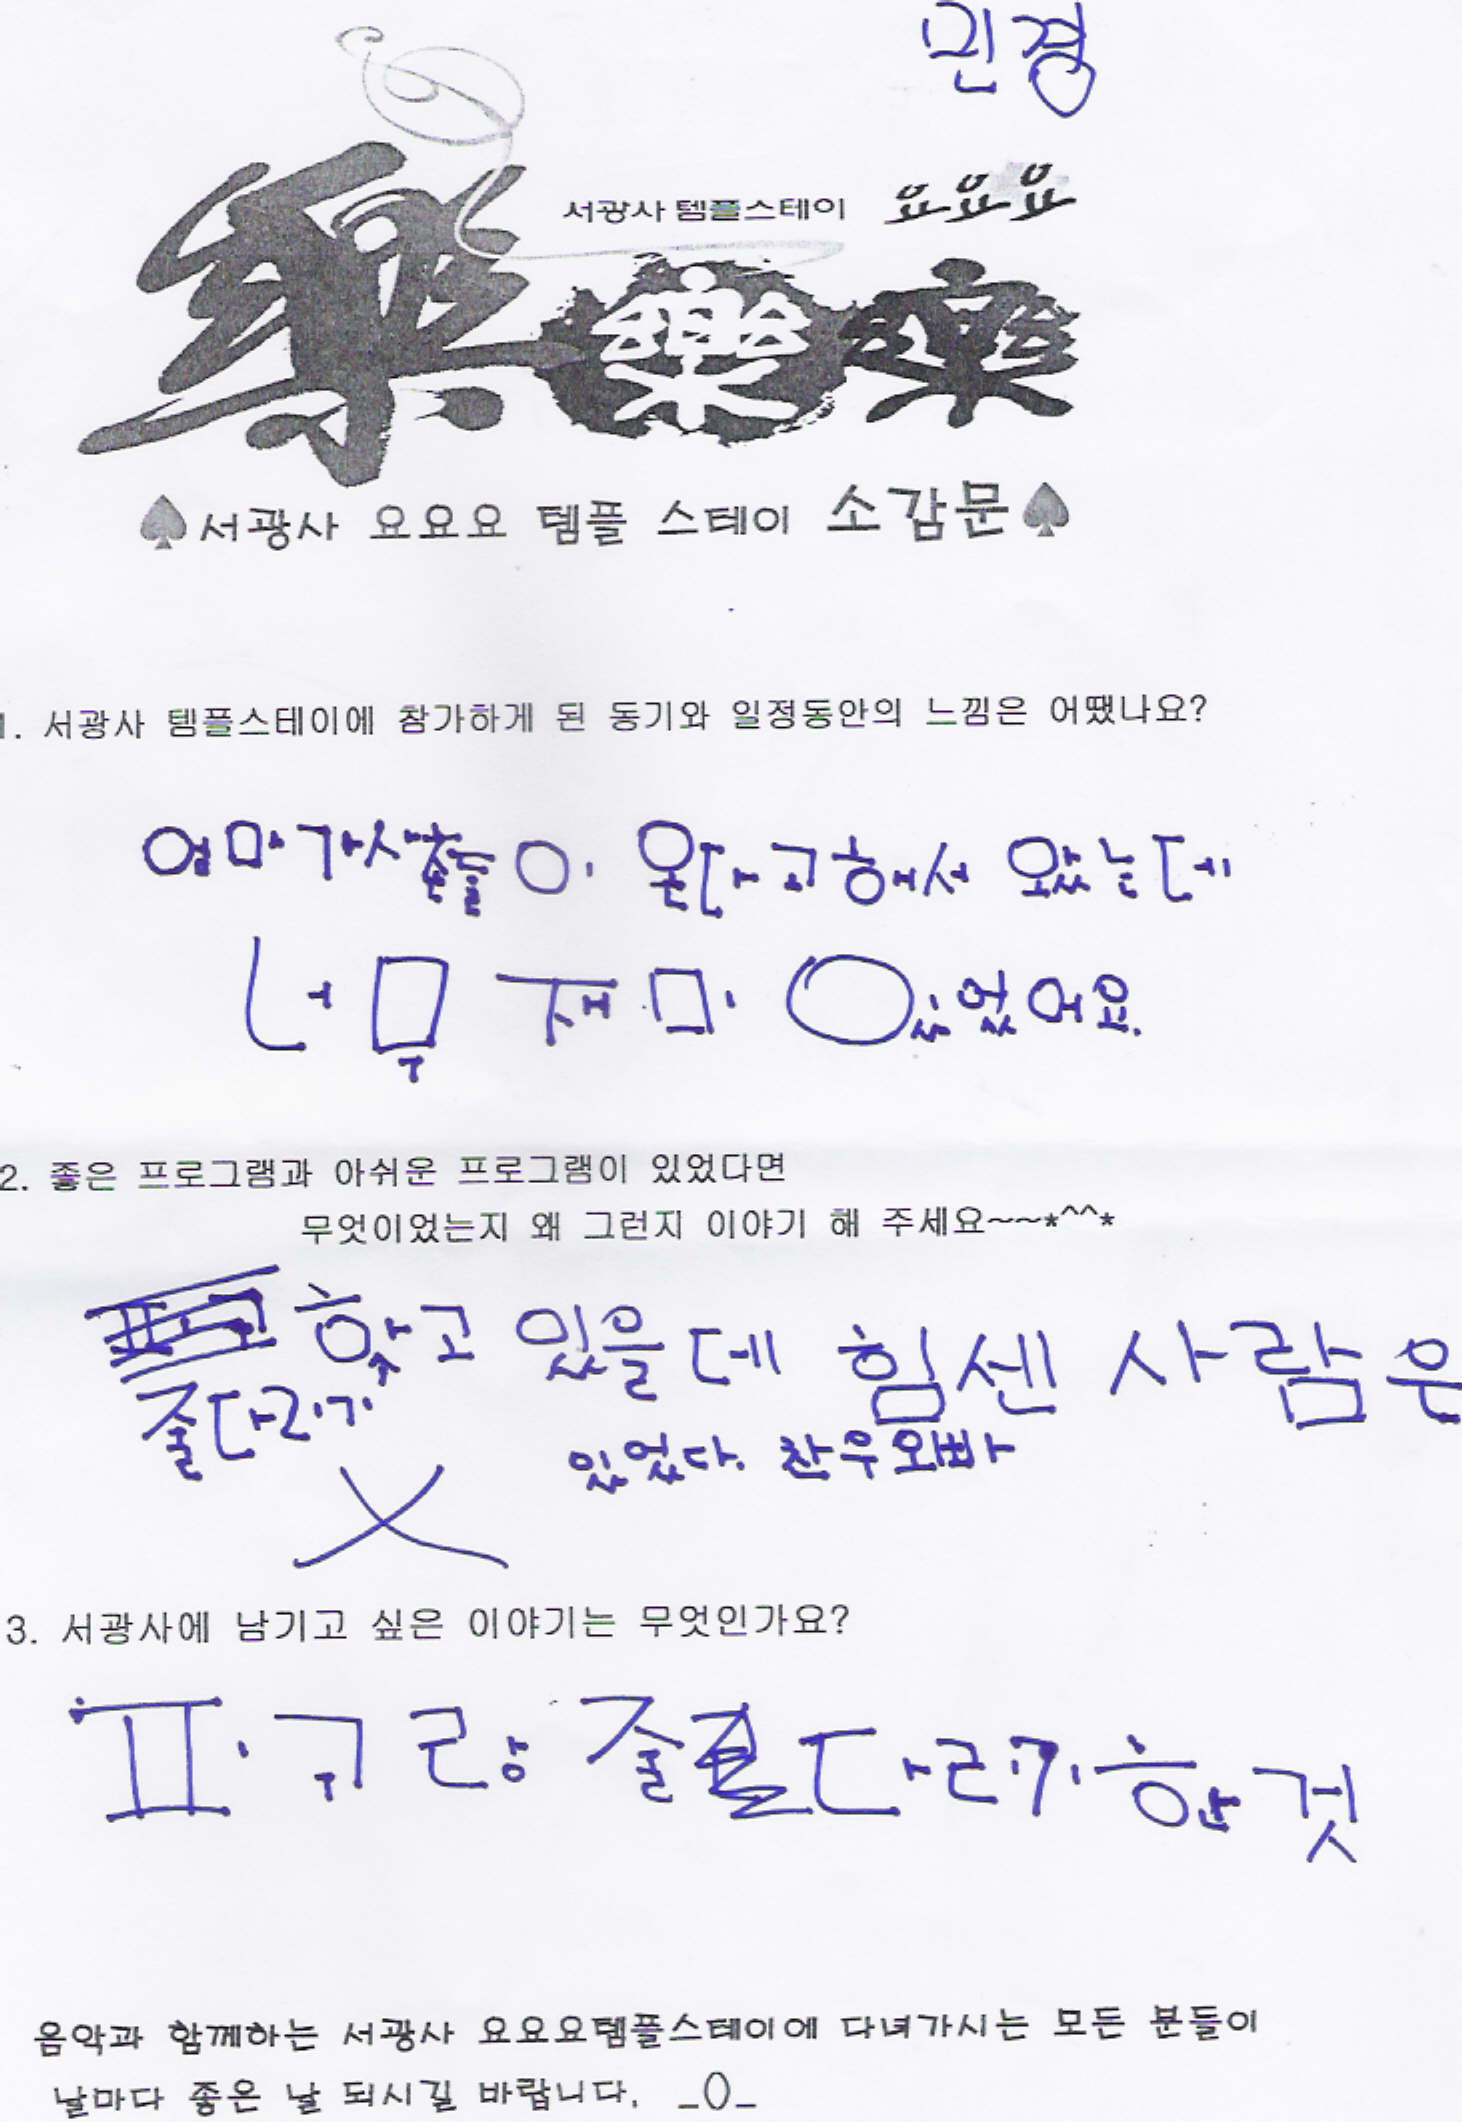 민경
서광사 템플스테이 요요요
樂 樂 樂
♠서광사 요요요 템플 스테이 소감문♠
1. 서광사 템플스테이에 참가하게 된 동기와 일정동안의 느낌은 어땠나요?
엄마가 사촌들이 온다고 해서 왔는데
너무 재미 있었어요.
2. 좋은 프로그램과 아쉬운 프로그램이 있었다면
무엇이었는지 왜 그런지 이야기 해 주세요~~*^^*
하고 있을데 힘센 사람은
줄다리기
있었다. 찬우오빠
3. 서광사에 남기고 싶은 이야기는 무엇인가요?
피구랑 줄다리기한 것
음악과 함께하는 서광사 요요요템플스테이에 다녀가시는 모든 분들이
날마다 좋은 날 되시길 바랍니다. _()_